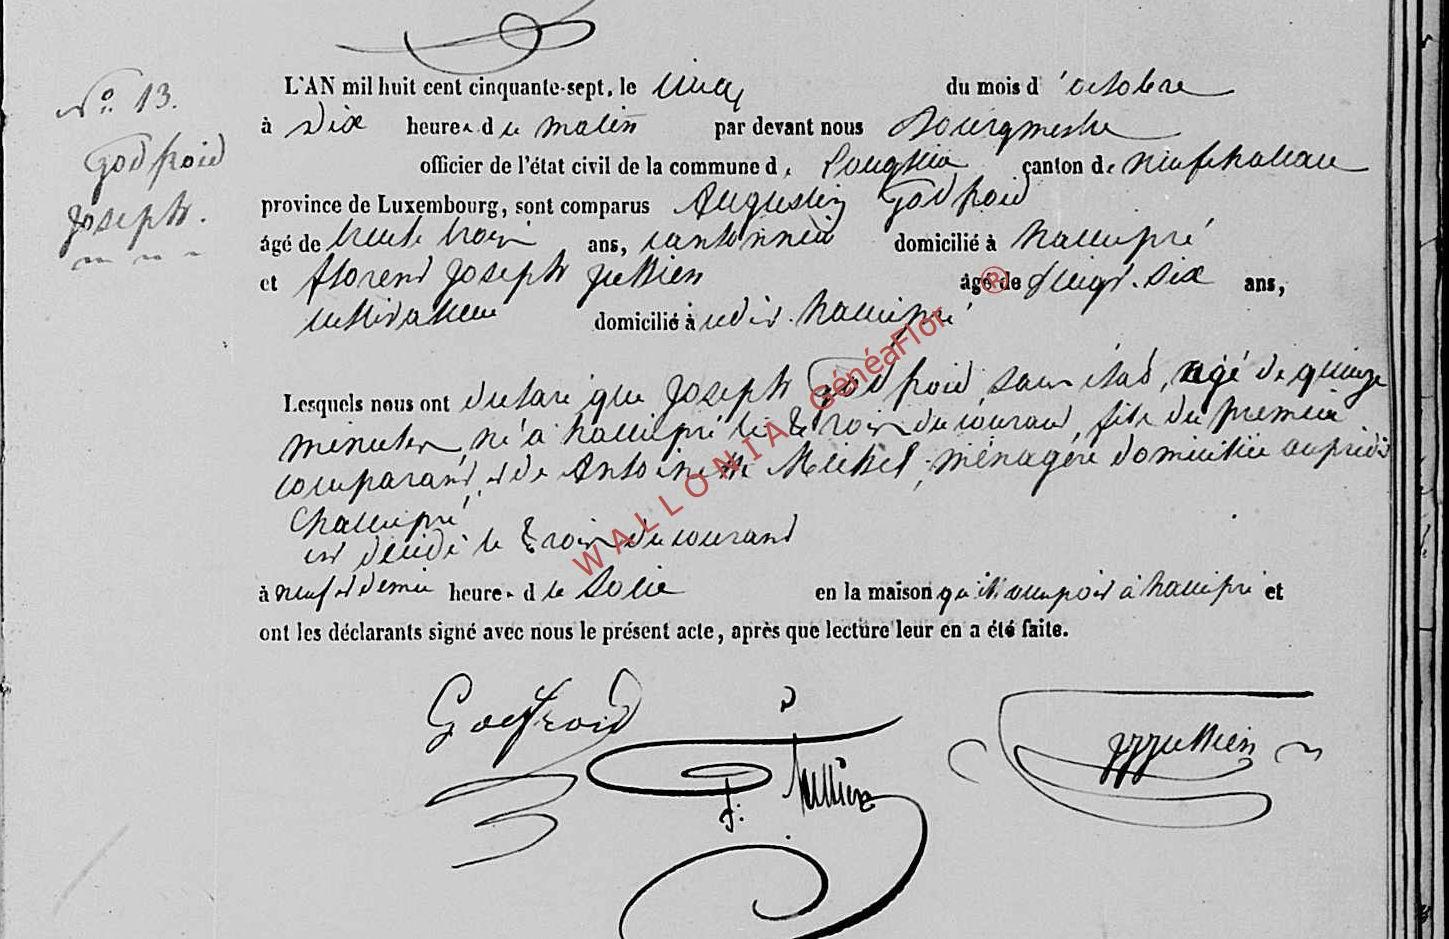 No. 13.
Godfroid
Joseph.
L'AN mil huit cent cinquante-sept, le cinq du mois d'octobre
à Dix heures du matin par devant nous Bourgmestre
officier de l'état civil de la commune de Longlier canton de neufchateau
province de Luxembourg, sont comparus Augustin Godfroid
âgé de trente trois ans, cantonnier domicilié à hallupré
et florend Joseph Jullien âgé de vingt-six ans,
cultivateur domicilié à udit hallupré
Lesquels nous ont déclaré que Joseph Godfroid, sans état, agé de quinze
minutes, né à hallupré le trois du courant, fils du premier
comparant, et de Antoinette Michel, ménagère domiciliée auprédit
hallupré
est décédé le trois du courant
à neuf et demie heures du Soir en la maison qu'il occupoit à hallupré et
ont les déclarants signé avec nous le présent acte, après que lecture leur en a été faite.
Godfroid
f. Jullien
Jullien
WALLONIA GénéaFlor ®